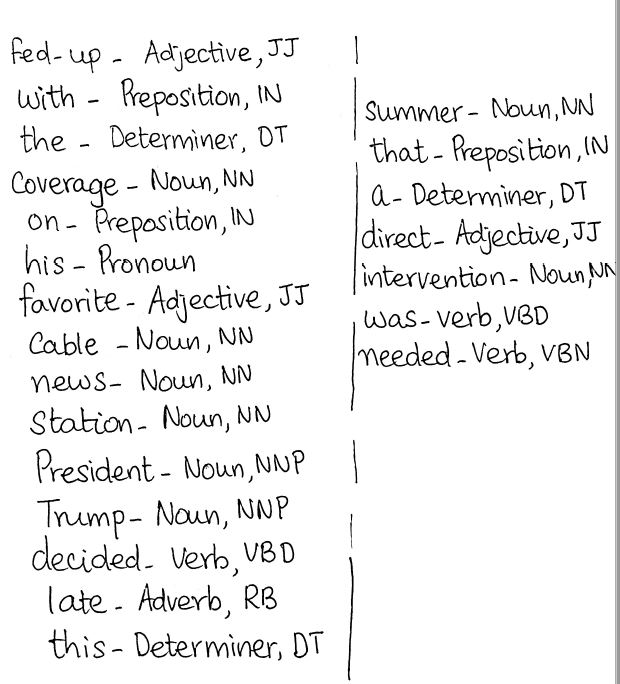 fed-up - Adjective, JJ
with - Preposition, IN
the - Determiner, DT
Coverage - Noun, NN
on - Preposition, IN
his - Pronoun
favorite - Adjective, JJ
Cable - Noun, NN
news - Noun, NN
Station - Noun, NN
President - Noun, NNP
Trump - Noun, NNP
decided - Verb, VBD
late - Adverb, RB
this - Determiner, DT
summer - Noun, NN
that - Preposition, IN
a - Determiner, DT
direct - Adjective, JJ
intervention - Noun, NN
was - verb, VBD
needed - Verb, VBN